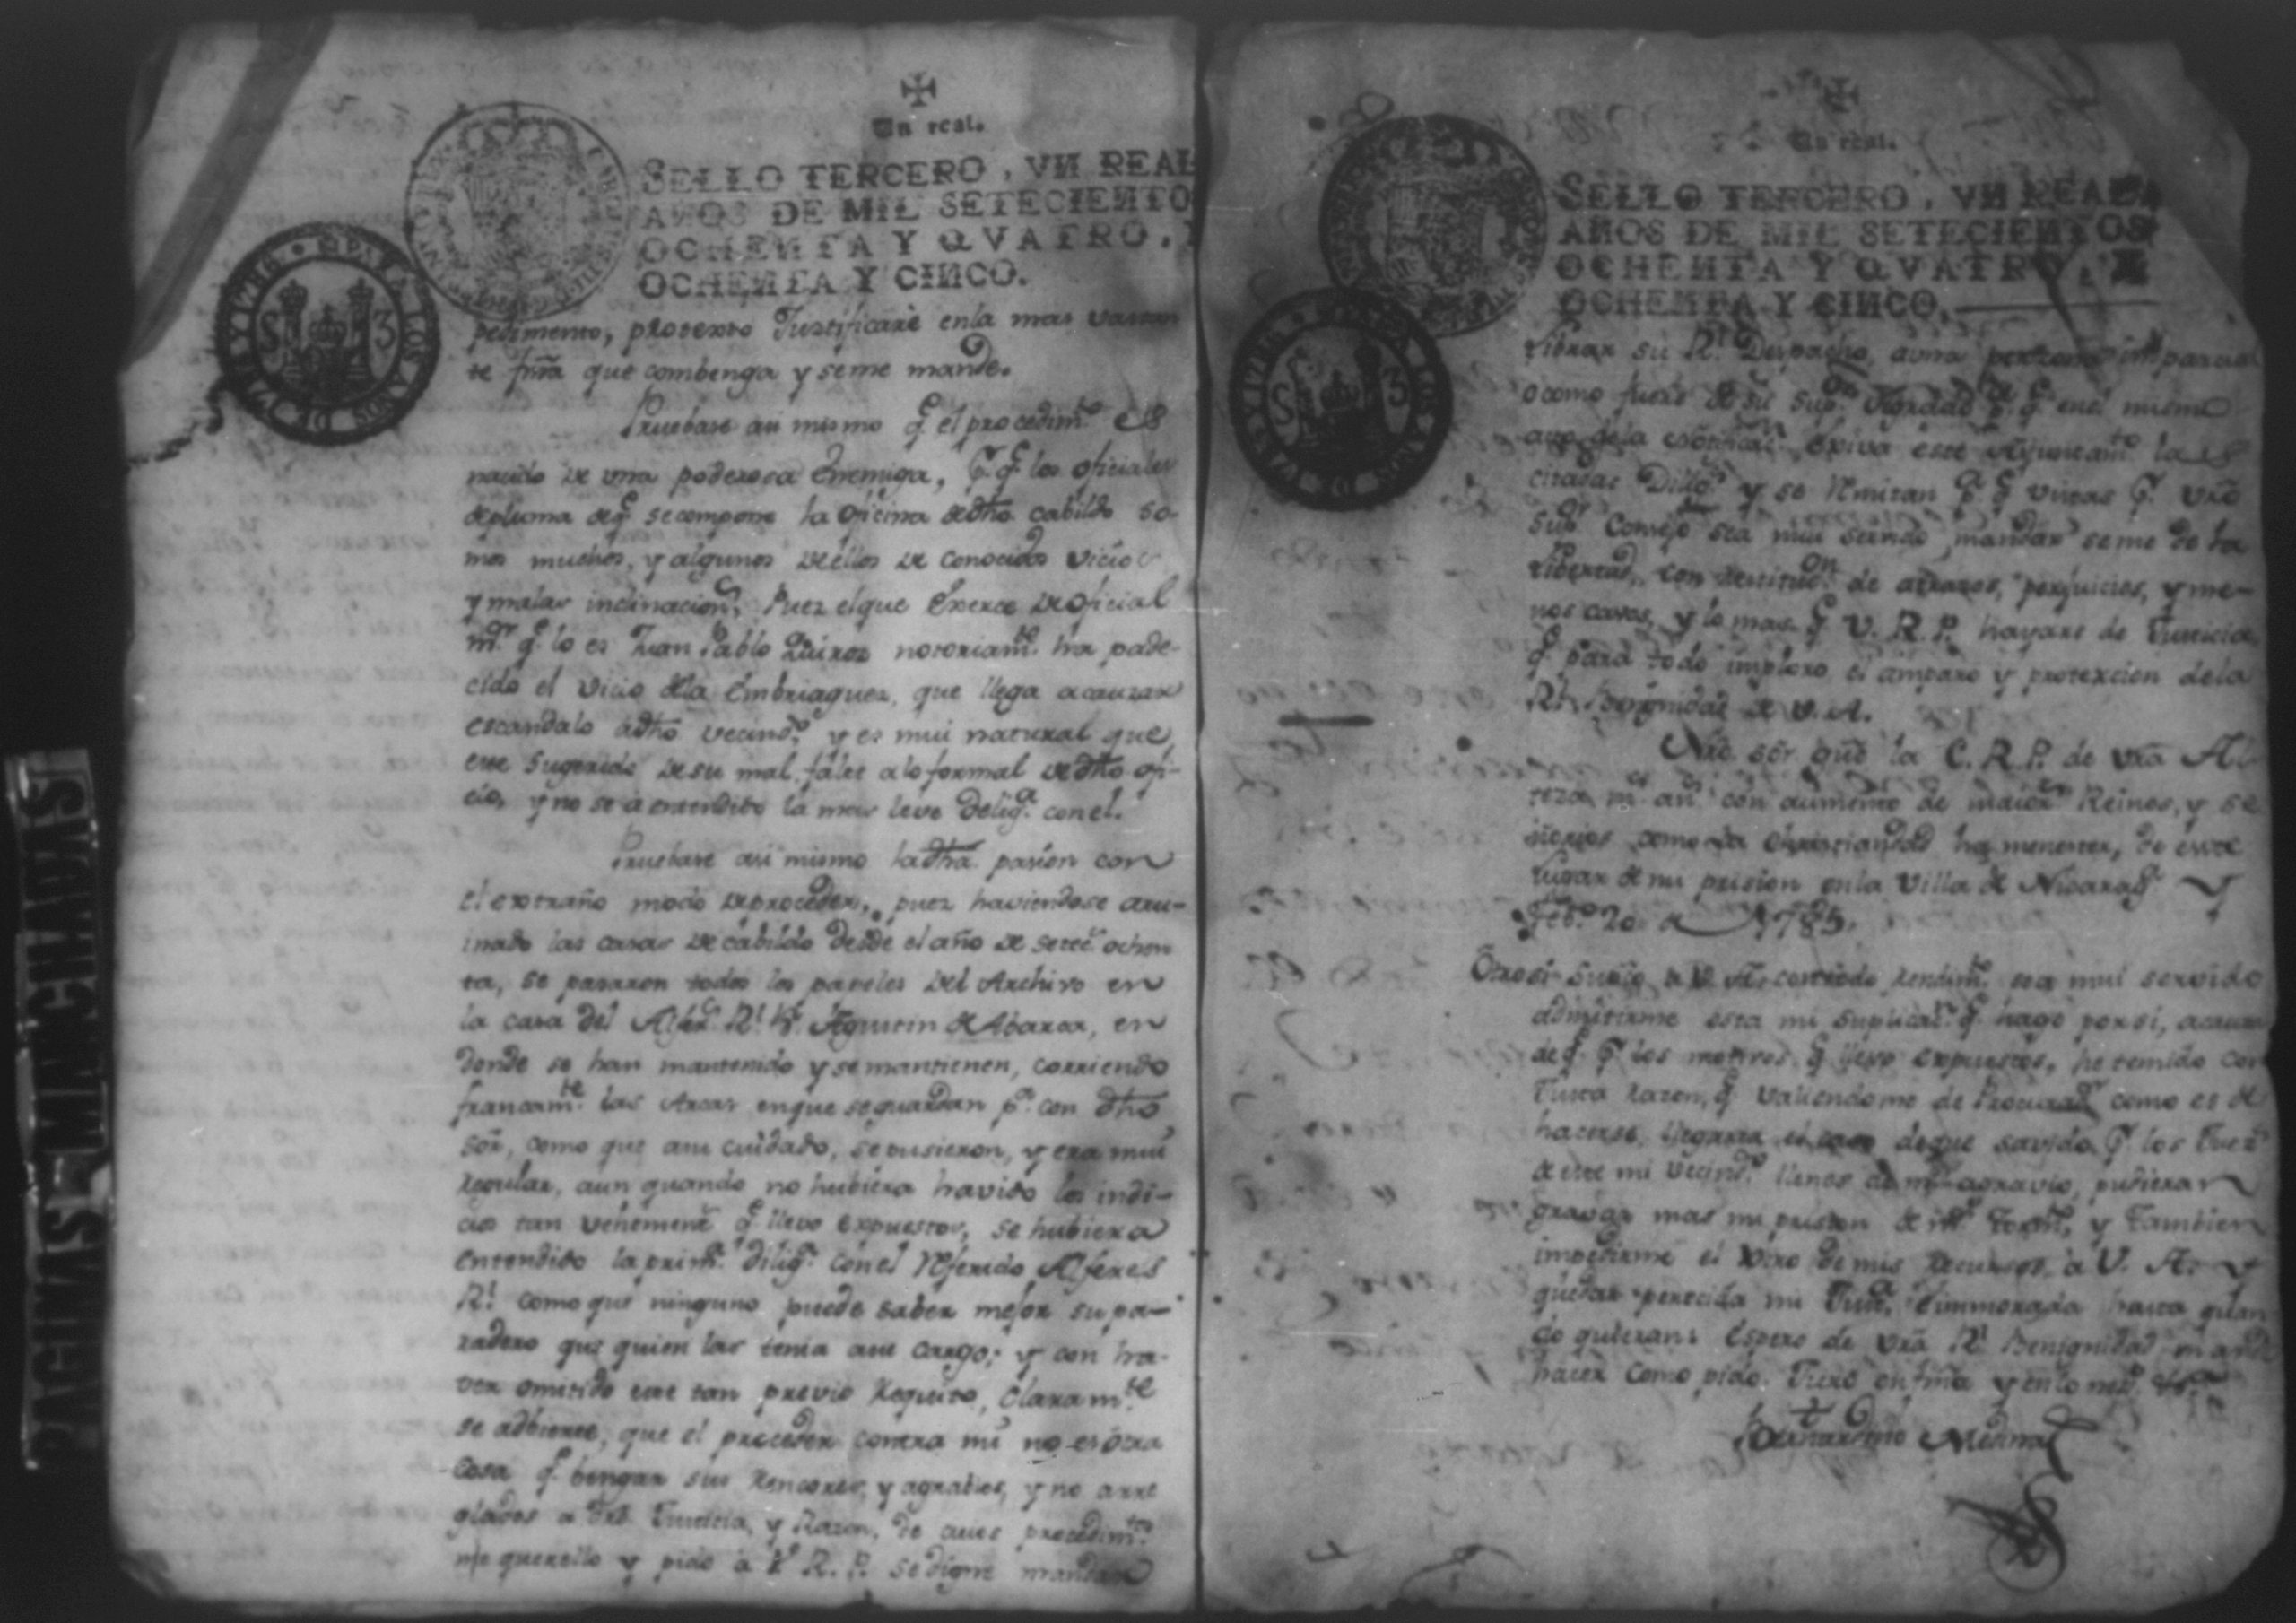 PAGINAS MANCHADAS
Un real.
SELLO TERCERO, VN REAL
AÑOS DE MIL SETECIENTO
OCHENTA Y QVATRO, Y
OCHENTA Y CINCO.
pedimento, protexto Justificaré enla mas vastan
te fr̃ma que combenga y seme mande.
Pruebase asi mismo q.e el procedim.to es
nacido de vna poderosa Enemiga, p.r q.e los oficiales
depluma deq.e secompone la oficina dedho cabildo so-
mos muchos, y algunos deellos de conocido vicio
y malas inclinacion.s Pues elque Exerce de oficial
m.or q.e lo es Juan Pablo Quiros notoriam.te ha pade-
cido el vicio dela Embriaguez, que llega acauzar
escandalo adho vecind.o y es mui natural que
ese sugerido desu mal, falte alo formal dedho ofi-
cio, y no se á entendido la mas leve Delig.a con el.
Pruebase asi mismo ladha pasion con
el extraño modo deproceder, pues haviendose arru-
inado las casas de cabildo desde el año de setec.s ochen
ta, se pasaron todos los papeles del Archivo en
la casa del Alfer.s R.l D.n Agustin de Abarca, en
donde se han mantenido y semantienen, corriendo
francam.te las Arcas enque seguardan p.r con dho
Sõr, como que asu cuidado, sepusieron, y era mui
regular, aun quando no hubiera havido los indi-
cios tan vehement.s q.e llevo expuestos, se hubiera
entendido la prim.a dilig.a con el Referido Alferes
R.l como que ninguno puede saber mejor su pa-
radero que quien las tenia asu cargo; y con ha-
ver omitido ese tan previo Requisito, claram.te
se adbierte, que el proceder contra mi no es otra
cosa q.e bengar sus Rencores, y agrabios, y no arre
glados a dro. Justicia, y Razon, de cuios procedim.tos
me querello y pido á V. R. P. sedigne mandar
Un real.
SELLO TERCERO, VN REAL
AÑOS DE MIL SETECIENTOS
OCHENTA Y QVATRO, Y
OCHENTA Y CINCO.
Librar su R.l Despacho, auna persona imparcial
ocomo fuere de su sup.or Agrado p.a q.e en el mismo
acto dela
citadas Dilig.s y se Remitan p.a q.e vistas p.r vr̃o
sup.or Consejo sea mui servido, mandar seme de la
libertad, con restituc.on de atrazos, perjuicios, y me-
nos cavos, y lo mas q.e V. R. P. hayare de Justicia,
q.e para todo imploro el amparo y protexcion dela
R.l Benignidad de V. A.
Nr̃o sõr que la C. R. P. de vr̃a Al-
teza m.s an.s con aumento de maior.s Reinos, y se
ñorios como la christiandad ha menester, de este
Lugar de mi prision enla Villa de Nicarag.a y
Feb.o 20. de 1785.
Otrosi Suplico a V. A. contodo rendim.to sea mui servido
admitirme esta mi suplicas.n q.e hago por si, acausa
deq.e p.r los motivos q.e llevo expuestos, he temido con
Justa razon, q.e valiendome de Procurad.r como es de
hacerse, llegara el caso deque savido p.r los Juez.s
de este mi vecind.o llenos de m.s agravio, pudieran
gravar mas mi prision y tambien
impedirme el Giro de mis recursos a V. A. y
quedar perecida mi Just.a immorada hasta quan
do quieran: Espero de vr̃a R.l Benignidad mande
hacer como pido. Juro enfr̃ma y enlo nes.o &.a
Bernardino Medina